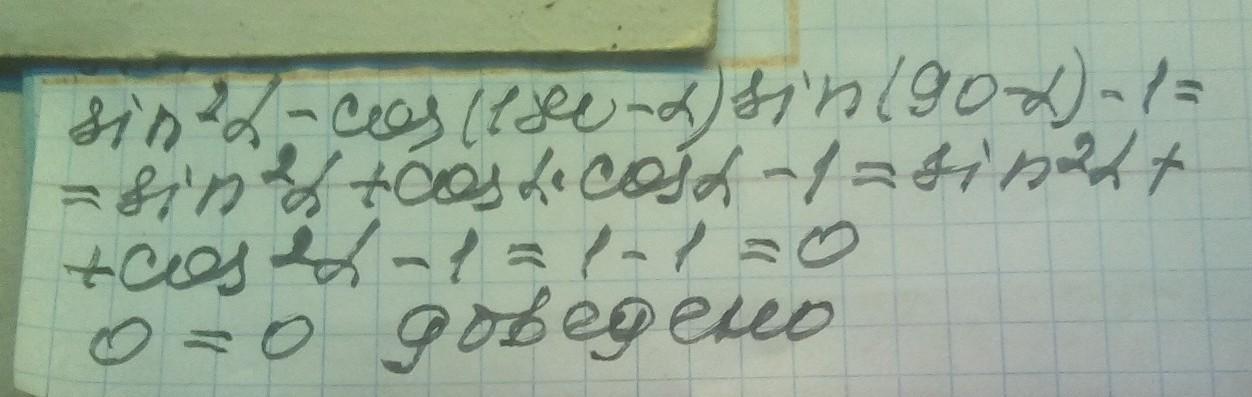 sin²α - cos(180-α)sin(90-α)-1=
=sin²α+cosα·cosα-1=sin²α+
+cos²α-1=1-1=0
0=0 доведено